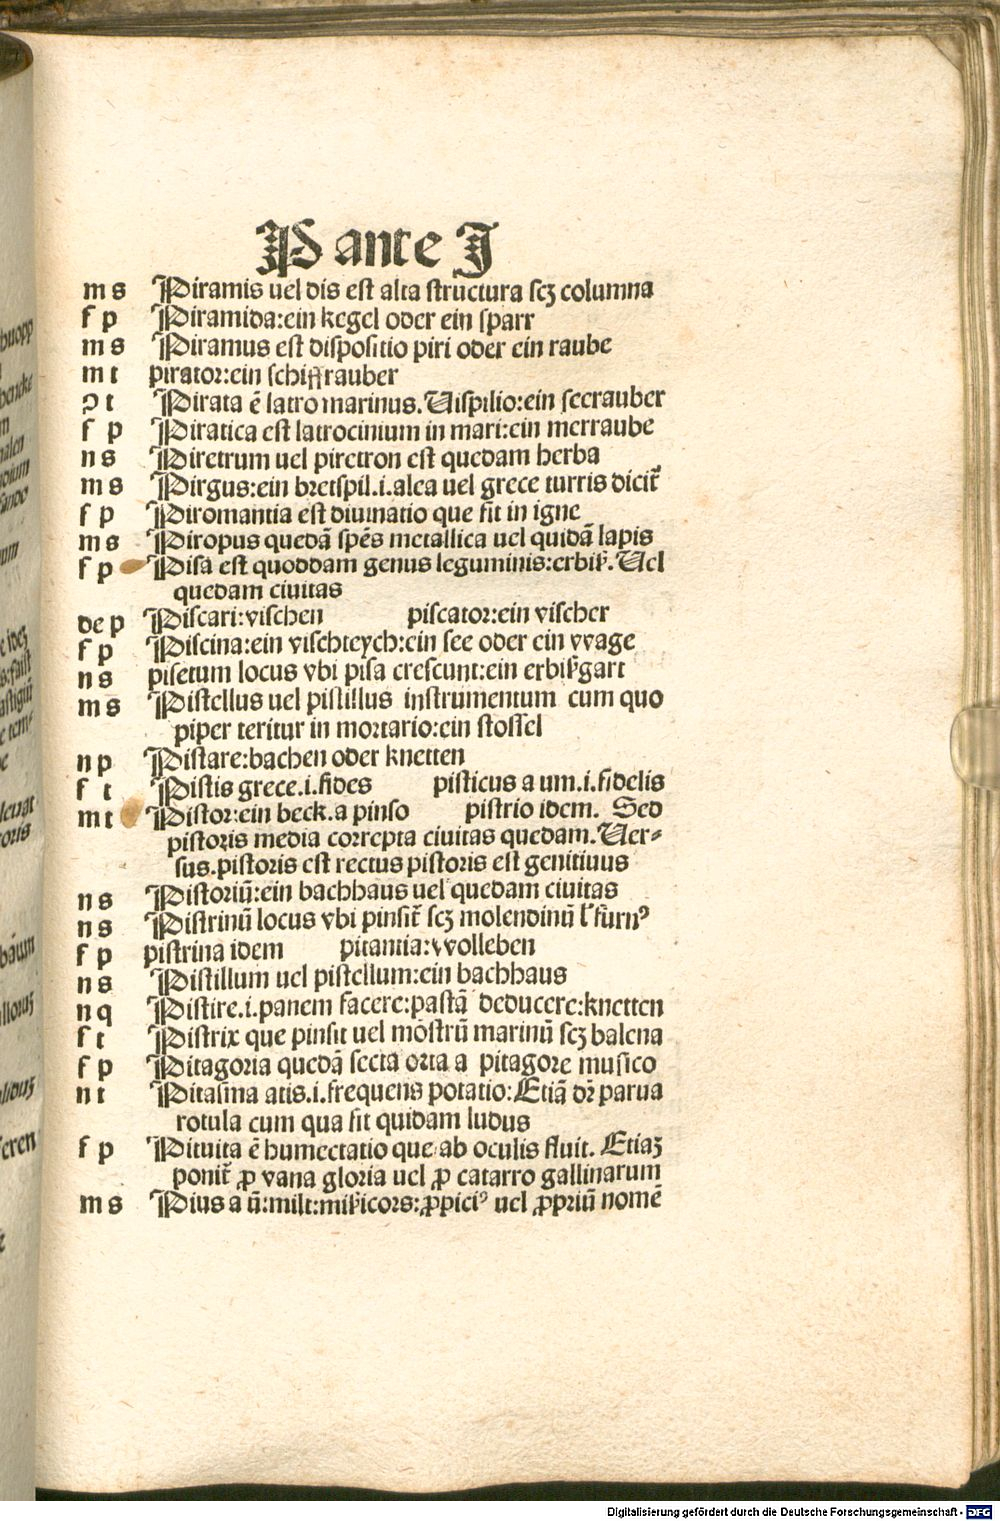 P ante J
m s Piramis uel dis est alta structura scꝫ columna
f p Piramida:ein kegel oder ein sparr
m s Piramus est dispositio piri oder ein raube
m t pirator:ein schiffrauber
ꝯ t Pirata ē latro marinus.Uispilio:ein seerauber
f p Piratica est latrocinium in mari:ein merraube
n s Piretrum uel piretron est quedam herba
m s Pirgus:ein bretspil.i.alea uel grece turris dicit᷑
f p Piromantia est diuinatio que fit in igne
m s Piropus quedā spēs metallica uel quidā lapis
f p Pisa est quoddam genus leguminis:erbiß. Uel
quedam ciuitas
de p Piscari:vischen piscator:ein vischer
f p Piscina:ein vischteych:ein see oder ein vvage
n s pisetum locus vbi pisa crescunt:ein erbißgart
m s Pistellus uel pistillus instrumentum cum quo
piper teritur in mortario:ein stossel
n p Pistare:bachen oder knetten
f t Pistis grece.i.fides pisticus a um.i.fidelis
m t Pistor:ein beck.a pinso pistrio idem. Sed
pistoris media correpta ciuitas quedam.Uer⸗
sus.pistoris est rectus pistoris est genitiuus
n s Pistoriū:ein bachhaus uel quedam ciuitas
n s Pistrinū locus vbi pinsit᷑ scꝫ molendinū l᷑ furnꝰ
f p pistrina idem pitantia:vvolleben
n s Pistillum uel pistellum:ein bachhaus
n q Pistire.i.panem facere:pastā deducere:knetten
f t Pistrix que pinsit uel mōstrū marinū scꝫ balena
f p Pitagoria quedā secta orta a pitagore musico
n t Pitasma atis.i.frequens potatio:Etiā dr̄ parua
rotula cum qua fit quidam ludus
f p Pituita ē humectatio que ab oculis fluit. Etiaꝫ
ponit᷑ ꝓ vana gloria uel ꝓ catarro gallinarum
m s Pius a ū:milt:mißicors:ꝓpiciꝰ uel ꝓpriū nomē
Digitalisierung gefördert durch die Deutsche Forschungsgemeinschaft - DFG